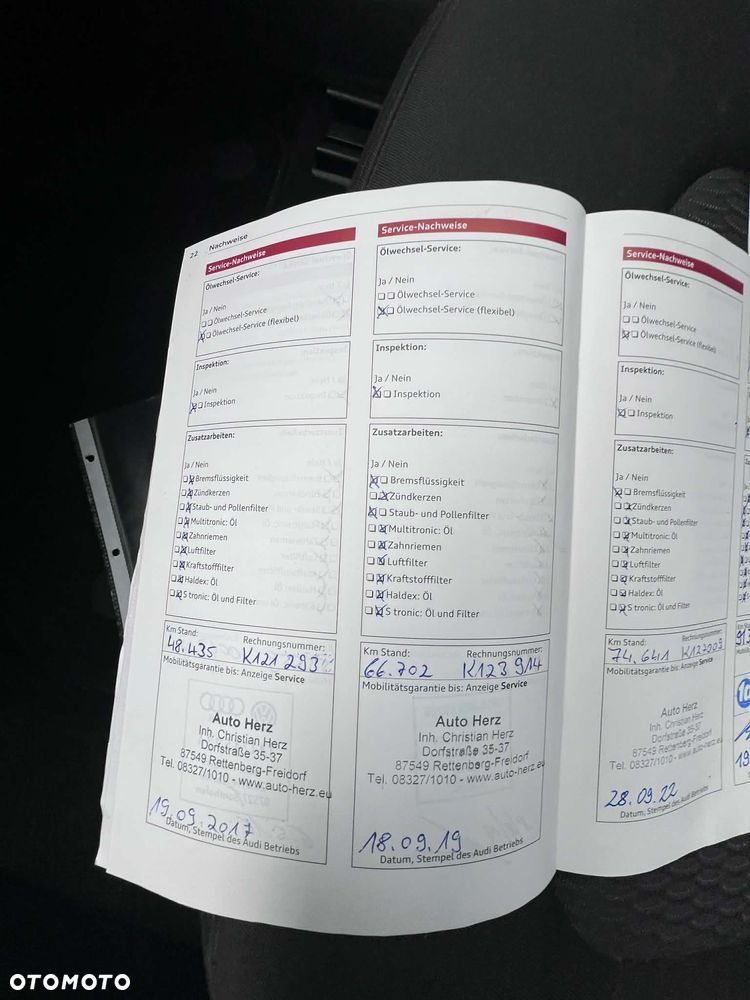 22 Nachweise
Service-Nachweise
Ölwechsel-Service:
Ja / Nein
Ölwechsel-Service
Ölwechsel-Service (flexibel)
Inspektion:
Ja / Nein
Inspektion
Zusatzarbeiten:
Ja / Nein
Bremsflüssigkeit
Zündkerzen
Staub- und Pollenfilter
Multitronic: Öl
Zahnriemen
Luftfilter
Kraftstofffilter
Haldex: Öl
S tronic: Öl und Filter
Km Stand: Rechnungsnummer:
48.435 K121293
Mobilitätsgarantie bis: Anzeige Service
Auto Herz
Inh. Christian Herz
Dorfstraße 35-37
87549 Rettenberg-Freidorf
Tel. 08327/1010 - www.auto-herz.eu
19.09.2017
Datum, Stempel des Audi Betriebs
Service-Nachweise
Ölwechsel-Service:
Ja / Nein
Ölwechsel-Service
Ölwechsel-Service (flexibel)
Inspektion:
Ja / Nein
Inspektion
Zusatzarbeiten:
Ja / Nein
Bremsflüssigkeit
Zündkerzen
Staub- und Pollenfilter
Multitronic: Öl
Zahnriemen
Luftfilter
Kraftstofffilter
Haldex: Öl
S tronic: Öl und Filter
Km Stand: Rechnungsnummer:
66.702 K123914
Mobilitätsgarantie bis: Anzeige Service
Auto Herz
Inh. Christian Herz
Dorfstraße 35-37
87549 Rettenberg-Freidorf
Tel. 08327/1010 - www.auto-herz.eu
18.09.19
Datum, Stempel des Audi Betriebs
Service-Nachweise
Ölwechsel-Service:
Ja / Nein
Ölwechsel-Service
Ölwechsel-Service (flexibel)
Inspektion:
Ja / Nein
Inspektion
Zusatzarbeiten:
Ja / Nein
Bremsflüssigkeit
Zündkerzen
Staub- und Pollenfilter
Multitronic: Öl
Zahnriemen
Luftfilter
Kraftstofffilter
Haldex: Öl
S tronic: Öl und Filter
Km Stand: Rechnungsnummer:
74.641 K127003
Mobilitätsgarantie bis: Anzeige Service
Auto Herz
Inh. Christian Herz
Dorfstraße 35-37
87549 Rettenberg-Freidorf
Tel. 08327/1010 - www.auto-herz.eu
28.09.22
Datum, Stempel des Audi Betriebs
OTOMOTO